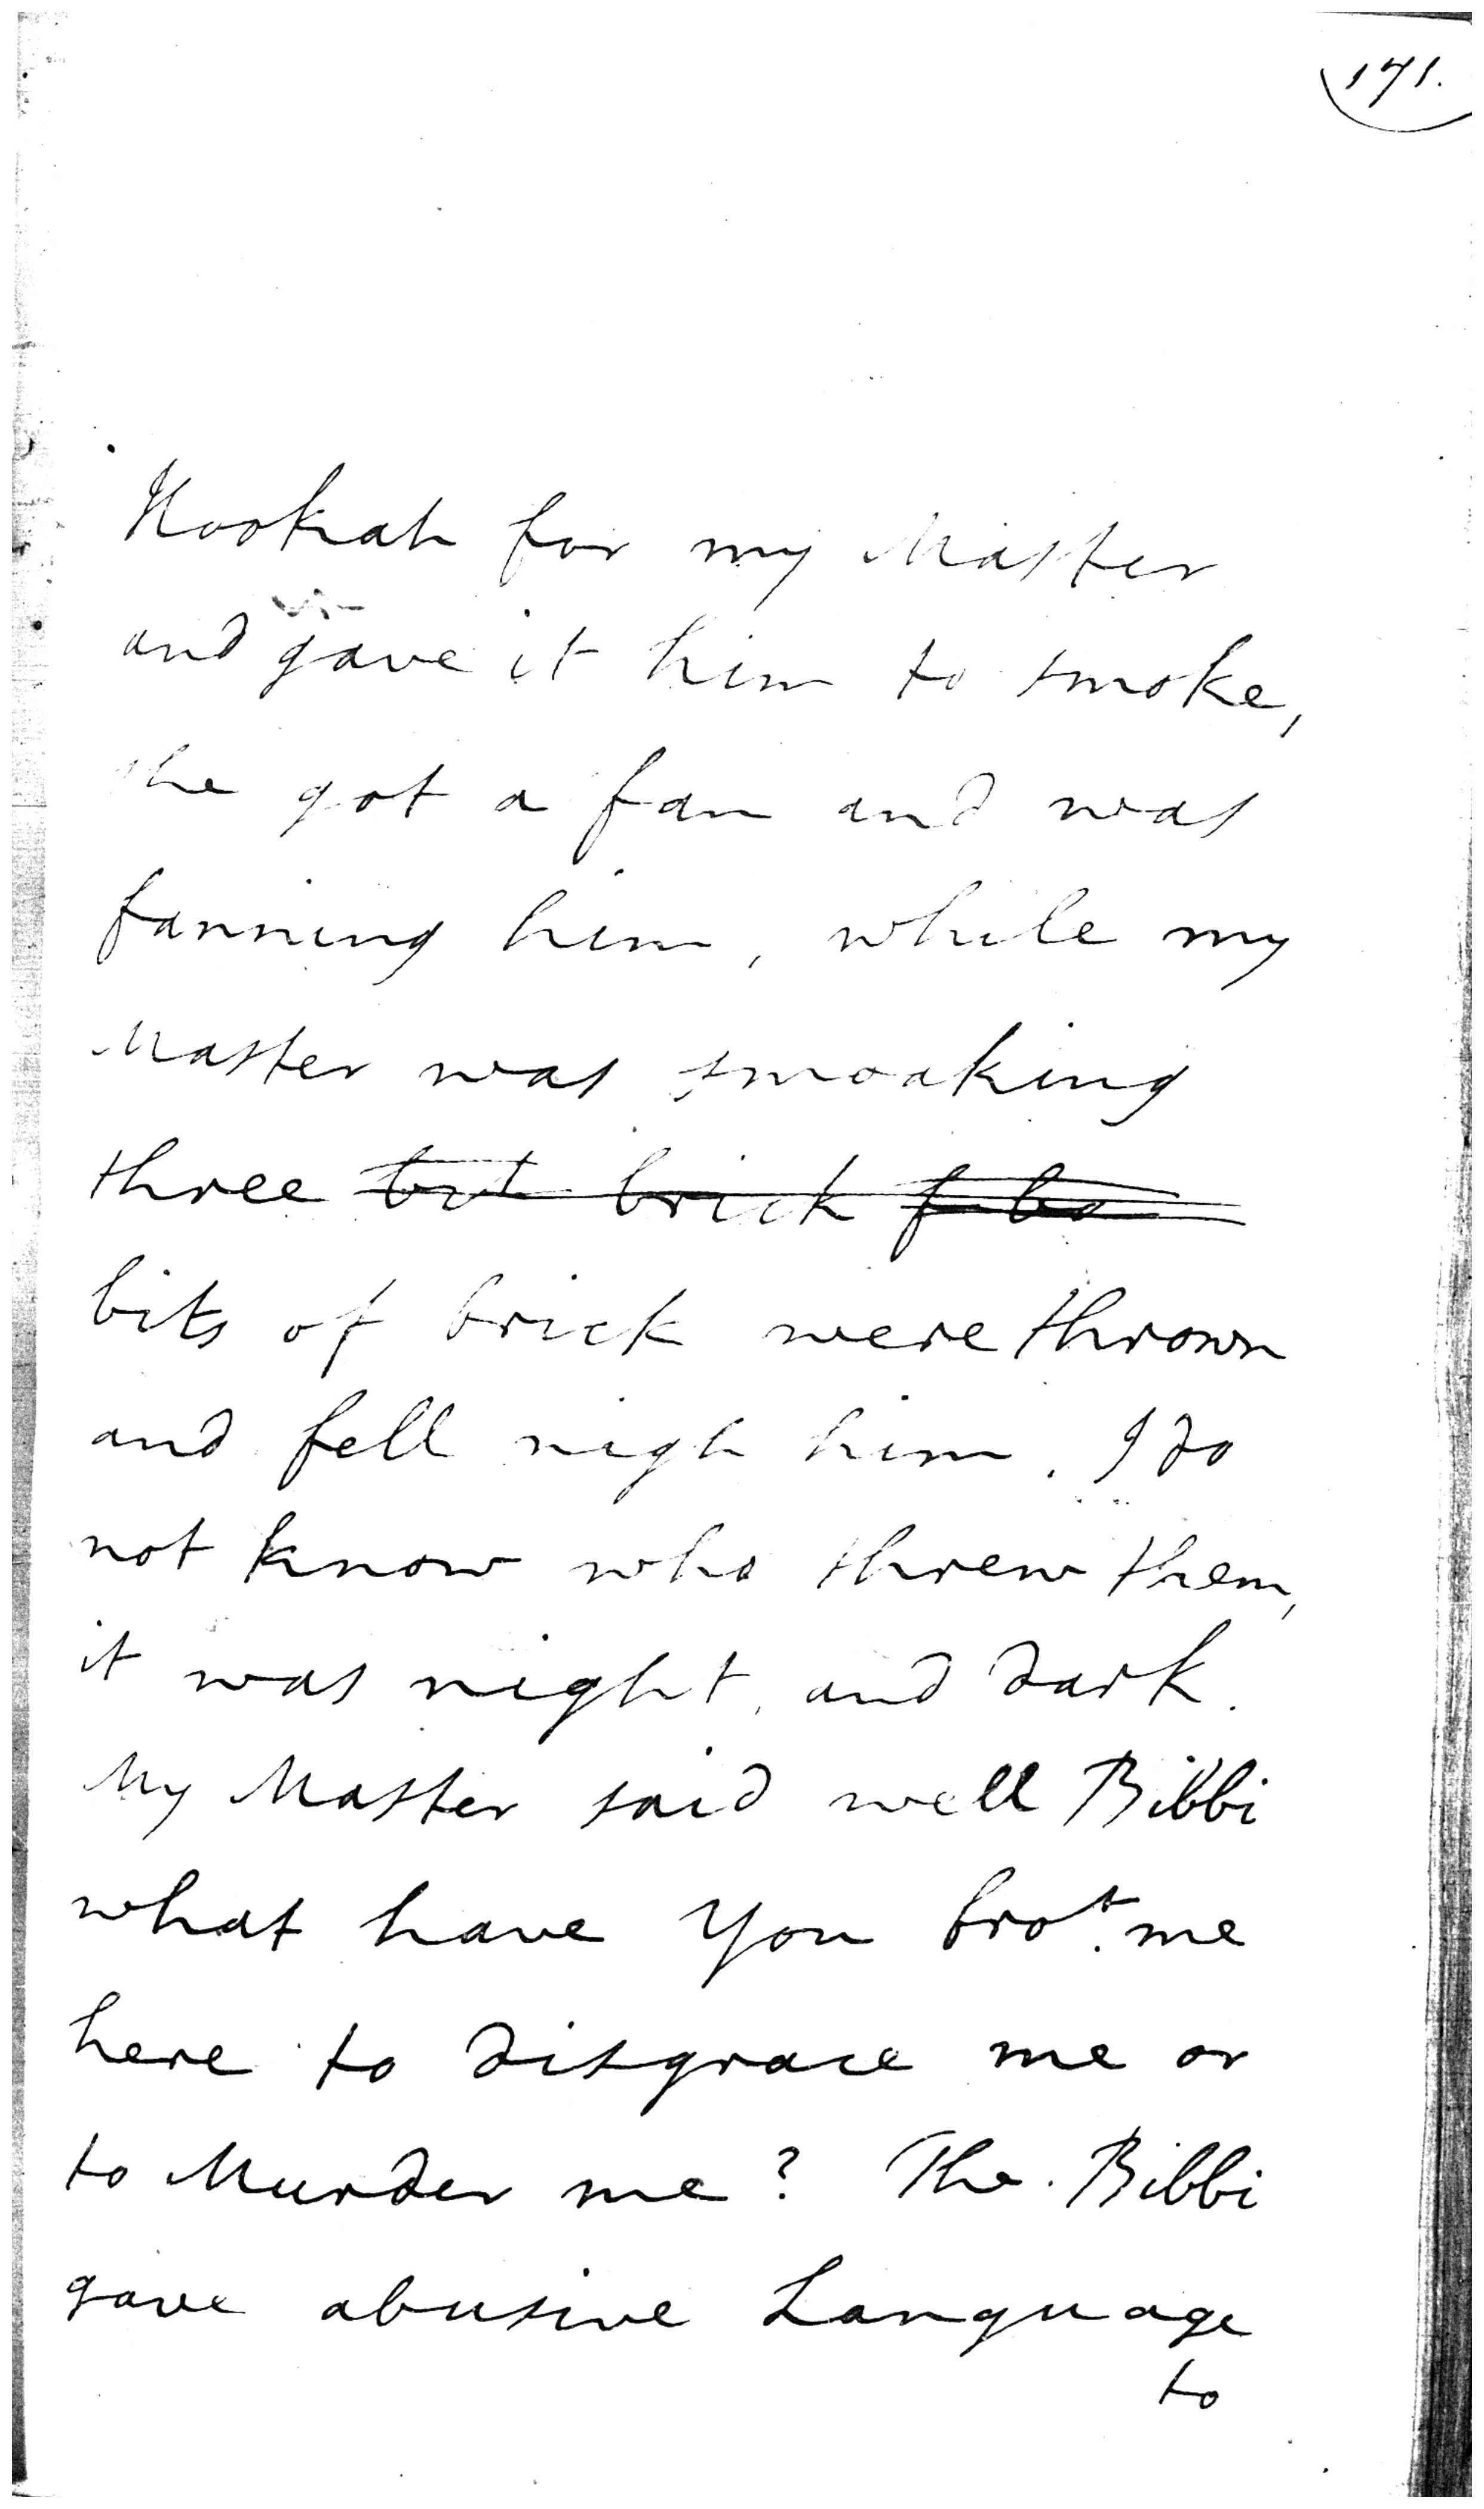 171.
Hookah for my Master
and gave it him to smoke,
she got a fan and was
fanning him, while my
Master was smoaking
three but brick
bits of brick were thrown
and fell nigh him. I do
not know who threw them,
it was night, and dark.
My Master said well Bibbi
what have you brot. me
here to disgrace me or
to Murder me? The Bibbi
gave abusive Language
to